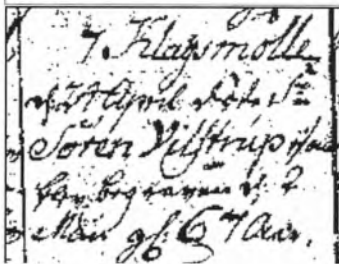 7. Klagsmølle
d. 27 April døde Sr
Sören Vilstrup
bev begraven d. 2
Maii gl. 67 Aar.